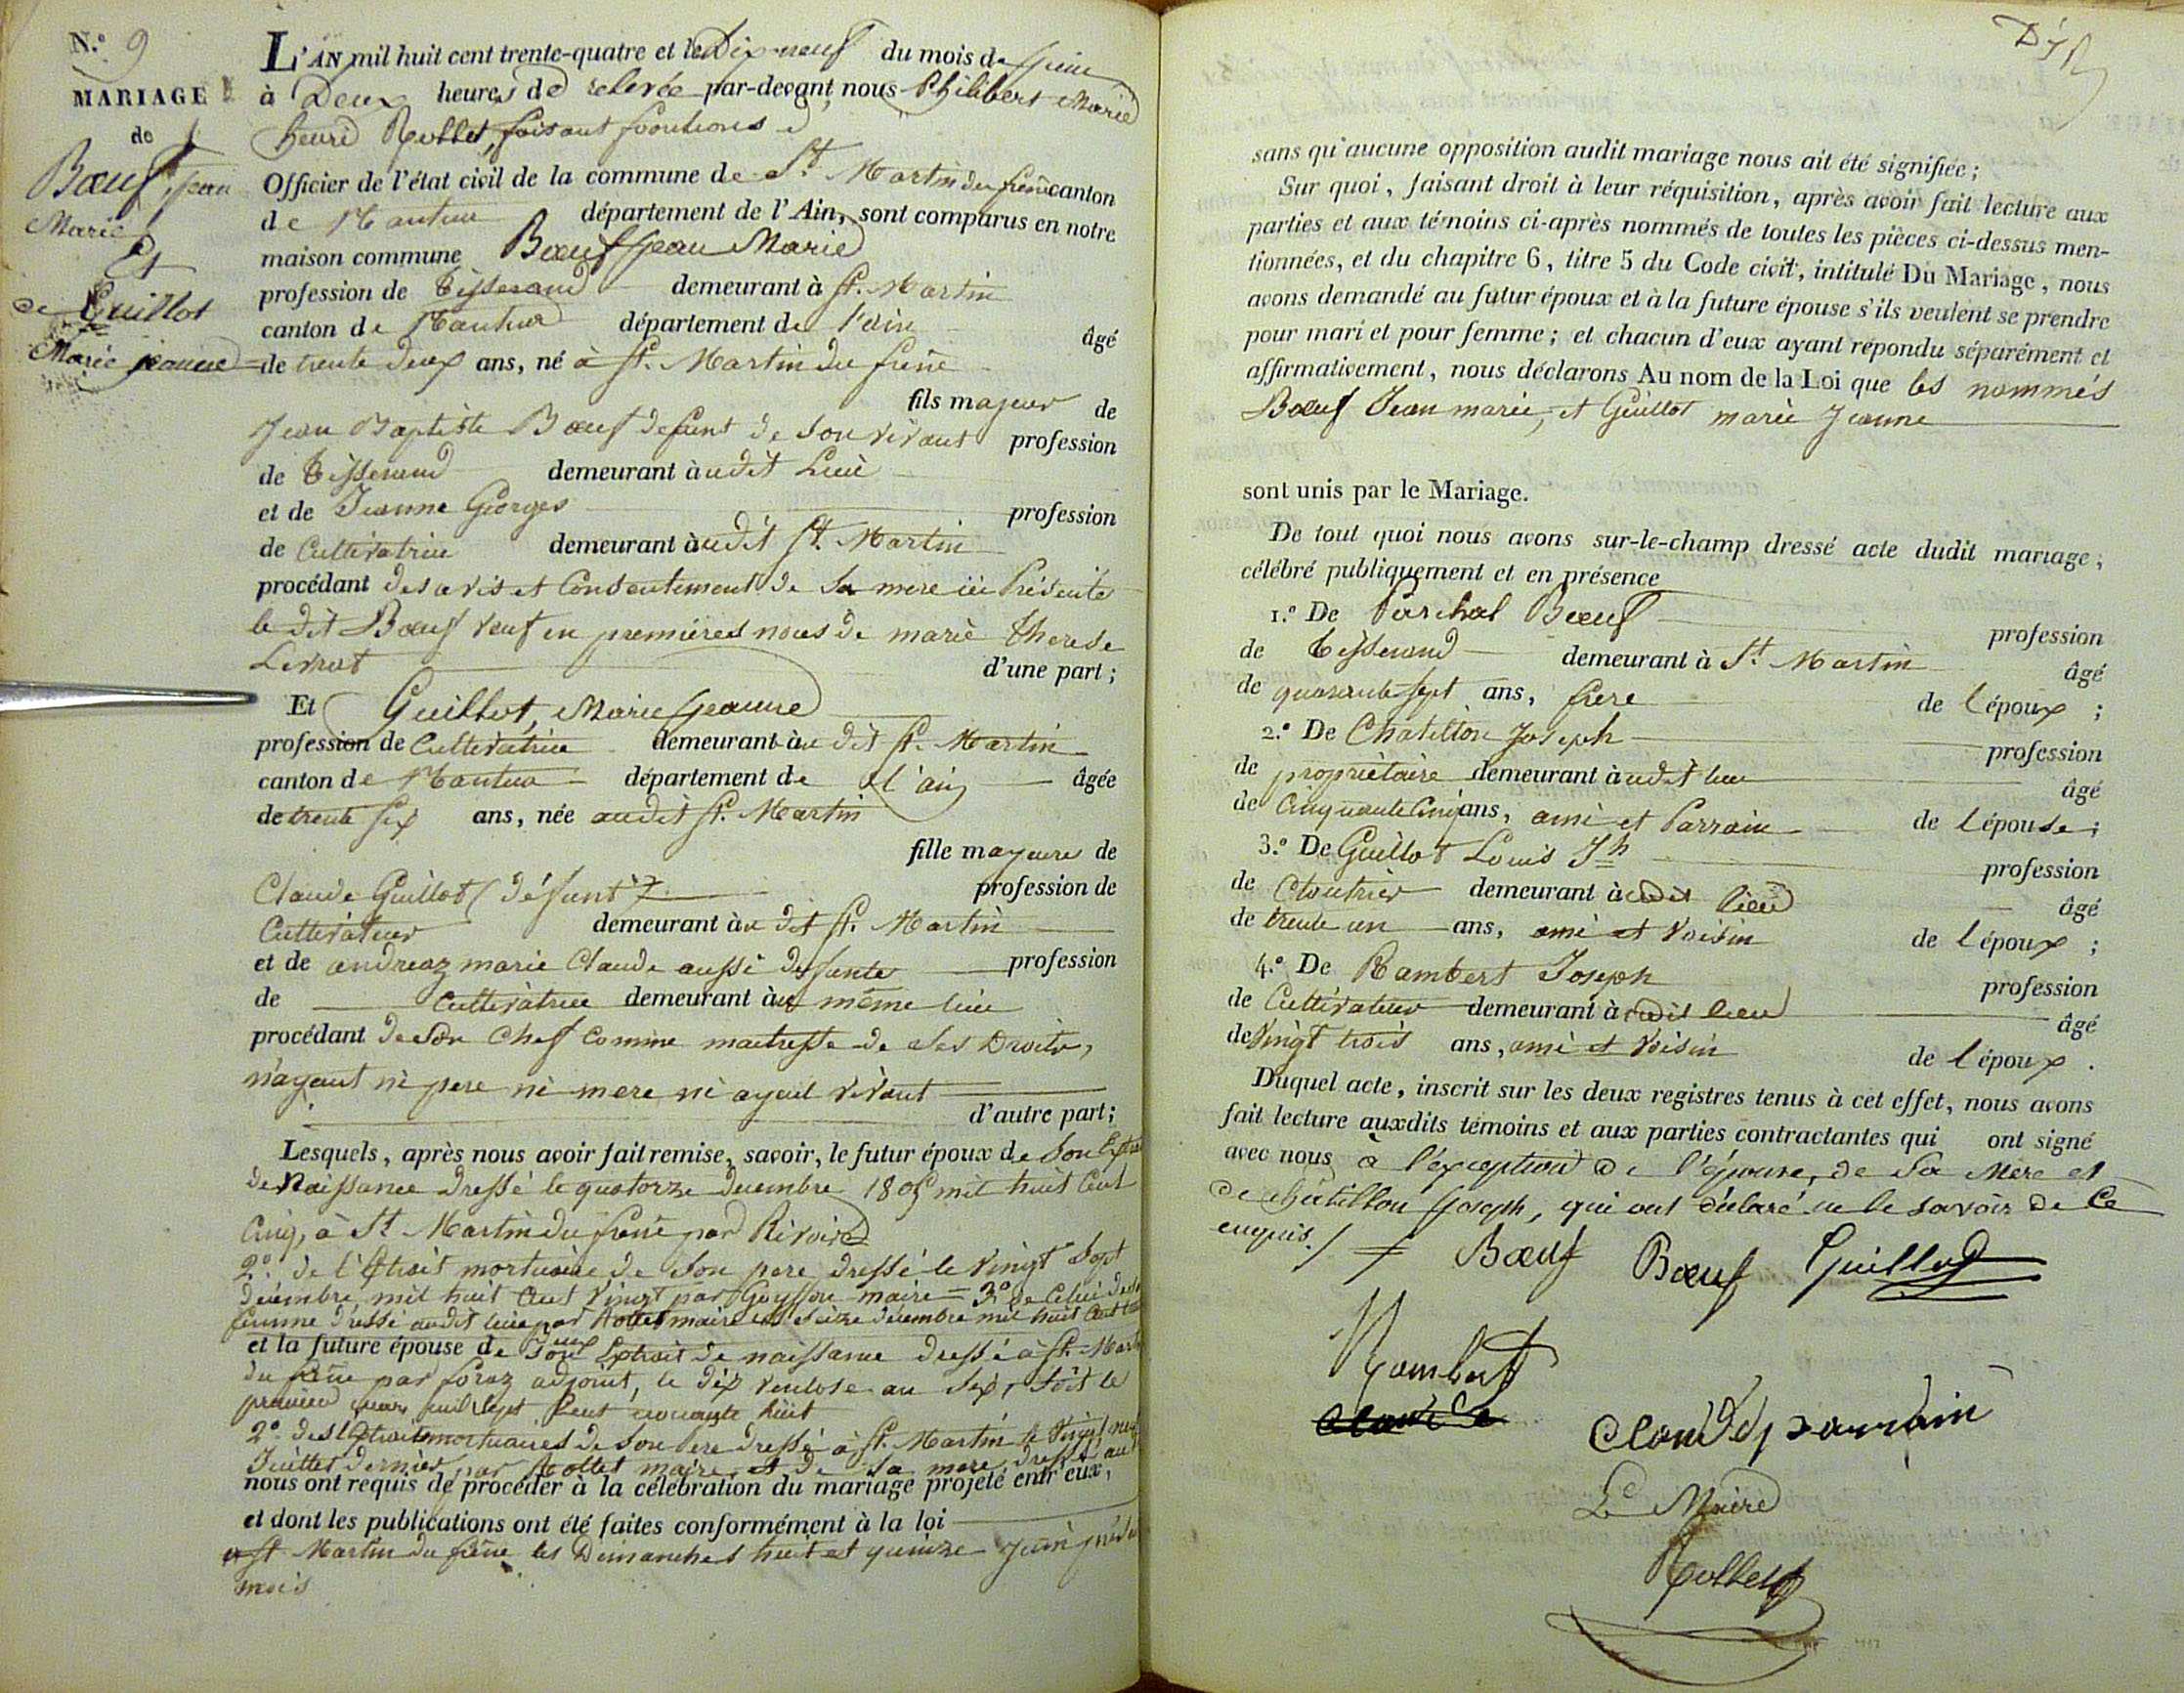 N.º 9
MARIAGE
de
Bœuf, Jean
Marie
Et
de Guillot
Marie jeanne
L'AN mil huit cent trente-quatre et le Dix neuf du mois de juin
à Deux heures de relevée par-devant nous Philibert Marie
henri Rollet, faisant fonctions d
Officier de l'état civil de la commune de St. Martin du frene canton
de Nantua département de l'Ain, sont comparus en notre
maison commune Bœuf Jean Marie
profession de Tisserand demeurant à St. Martin
canton de Nantua département de l'ain âgé
de trente deux ans, né à St. Martin du frene
fils majeur de
Jean Baptiste Bœuf defunt de son vivant profession
de Tisserand demeurant àudit Lieu
et de Jeanne Georges profession
de Cultivatrice demeurant àudit St. Martin
procédant des avis et Consentement de Sa mere ici Présente
le dit Bœuf veuf en premieres noces de marie therese
d'une part ;
Et Guillot, Marie Jeanne
profession de Cultivatrice demeurant àu dit St. Martin
canton de Nantua département de l'ain âgée
de trente six ans, née audit St. Martin
fille majeure de
Claude Guillot (défunt) profession de
Cultivateur demeurant àu dit St. Martin
et de andreaz marie Claude aussi deffunte profession
de Cultivatrice demeurant àu même lieu
procédant de son Chef Comme maitresse de ses Droits,
n'ayant ni pere ni mere ni ayeul vivant
d'autre part ;
Lesquels, après nous avoir fait remise, savoir, le futur époux de Son
de Naissance dressé le quatorze decembre 1805 mil huit Cent
Cinq, à St. Martin du frene par Rivoire
2º. de l'Extrait mortuaire de Son pere dressé le vingt Sept
décembre mil huit Cent vingt par maire = 3º de Celui de
femme dressé audit lieu par Rollet maire le Seize décembre mil huit Cent
et la future épouse de Son Extrait de naissance dressé à St. Mart
du frene par foraz adjoint, le dix ventose an Six, soit le
premier mars mil sept Cent nonante huit
2º. des Extraits mortuaires de Son Pere dressé à St. Martin le Vingt
Juillet dernier par Rollet maire et de Sa mere dressé
nous ont requis de procéder à la célébration du mariage projeté entr'eux,
et dont les publications ont été faites conformément à la loi
a St. Martin du frene les Dimanches huit et quinze Juin
mois
sans qu'aucune opposition audit mariage nous ait été signifiée ;
Sur quoi, faisant droit à leur réquisition, après avoir fait lecture aux
parties et aux témoins ci-après nommés de toutes les pièces ci-dessus men-
tionnées, et du chapitre 6, titre 5 du Code civil, intitulé Du Mariage, nous
avons demandé au futur époux et à la future épouse s'ils veulent se prendre
pour mari et pour femme ; et chacun d'eux ayant répondu séparément et
affirmativement, nous déclarons Au nom de la Loi que les nommés
Bœuf Jean marie, et Guillot marie Jeanne
sont unis par le Mariage.
De tout quoi nous avons sur-le-champ dressé acte dudit mariage,
célébré publiquement et en présence
1.º De Paschal Bœuf profession
de Tisserand demeurant à St. Martin âgé
de quarante Sept ans, frere de l'époux ;
2.º De Chatillon Joseph profession
de propriétaire demeurant àudit lieu âgé
de Cinquante Cinq ans, ami et Parrain de l'épouse ;
3.º De Guillot Louis Jh profession
de Cloutrier demeurant àudit lieu âgé
de trente un ans, ami et voisin de l'époux ;
4.º De Rambert Joseph profession
de Cultivateur demeurant àudit lieu âgé
de Vingt trois ans, ami et Voisin de l'époux .
Duquel acte, inscrit sur les deux registres tenus à cet effet, nous avons
fait lecture auxdits témoins et aux parties contractantes qui ont signé
avec nous à l'exception de l'épouse, de Sa Mere et
de Châtillon Joseph, qui ont déclaré ne le savoir de Ce
enquis. /
Bœuf Bœuf Guillot
Rambert
Le Maire
Rollet